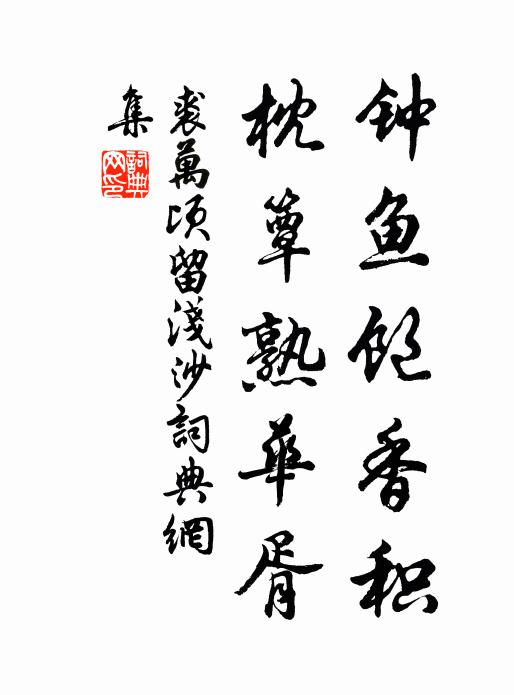 钟鱼饱香积
枕簟熟华胥
裘萬顷留淺沙詞典網
集
詞典网印